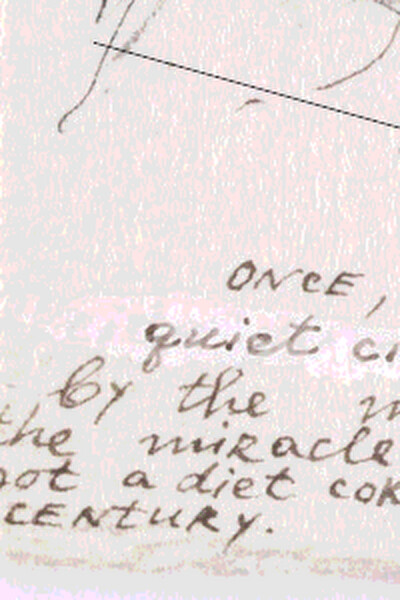 ONCE,
quiet
by the
the miracle
a diet
CENTURY.